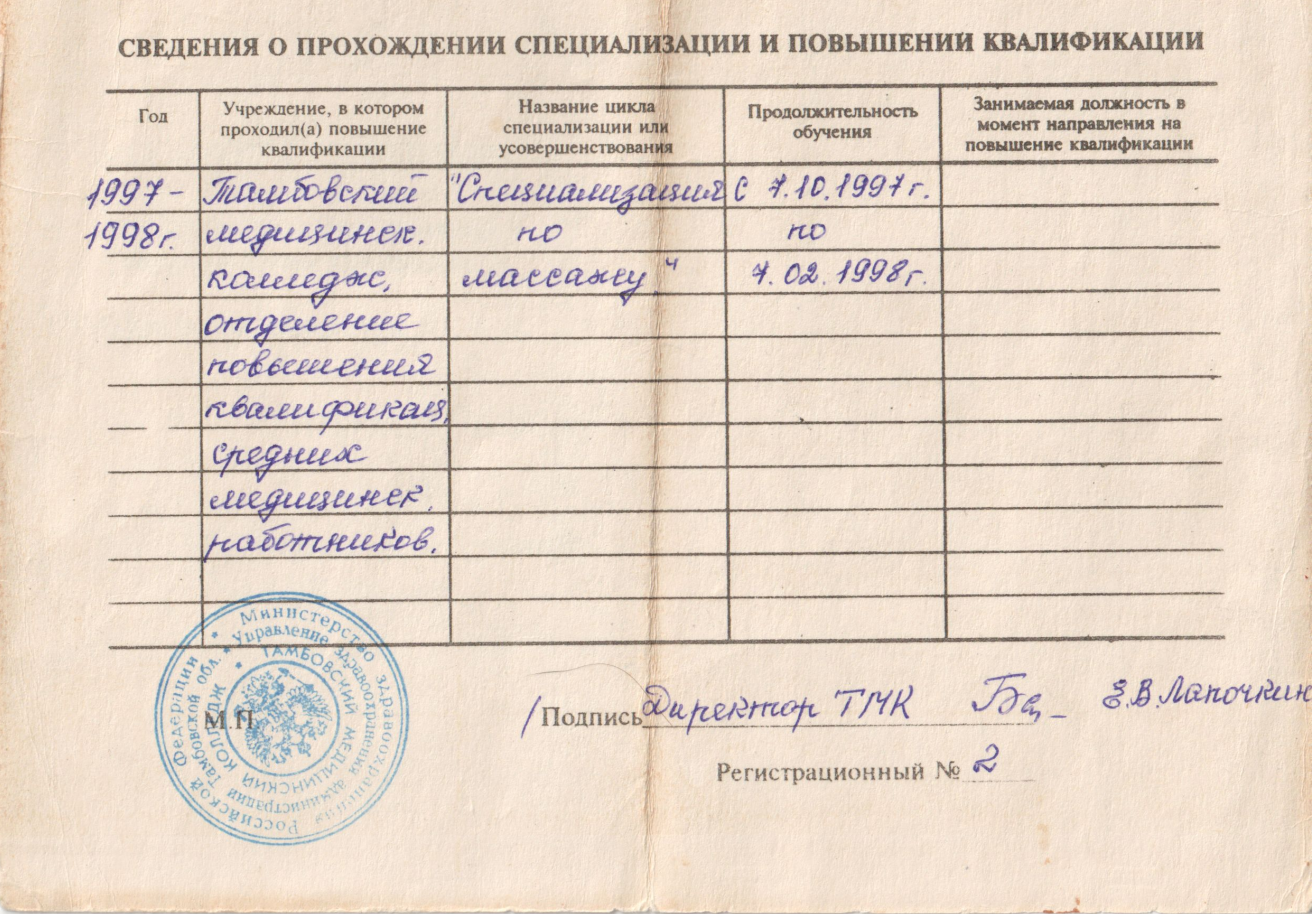 СВЕДЕНИЯ О ПРОХОЖДЕНИИ СПЕЦИАЛИЗАЦИИ И ПОВЫШЕНИИ КВАЛИФИКАЦИИ
Год
Учреждение, в котором
проходил(а) повышение
квалификации
Название цикла
специализации или
усовершенствования
Продолжительность
обучения
Занимаемая должность в
момент направления на
повышение квалификации
1997- Тамбовский "Специализация с 7.10.1997г.
1998г. медицинск. по по
колледж, массажу" 7.02.1998г.
отделение
повышения
квалификац.
средних
медицинск.
работников.
Министерство здравоохранения Российской Федерации
Управление здравоохранения администрации Тамбовской обл.
ТАМБОВСКИЙ МЕДИЦИНСКИЙ КОЛЛЕДЖ
М.П.
/ Подпись Директор ТМК Е.В.Лапочкин
Регистрационный № 2